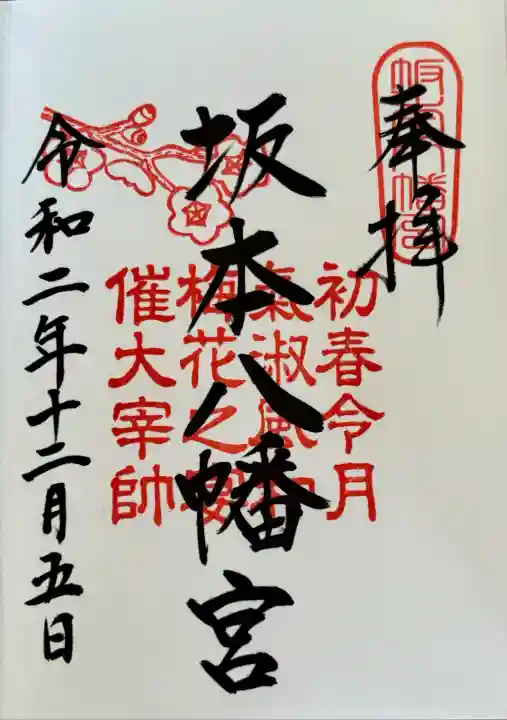 奉拝
坂本八幡宮
初春令月
氣淑風和
梅花之宴
催大宰帥
令和二年十二月五日